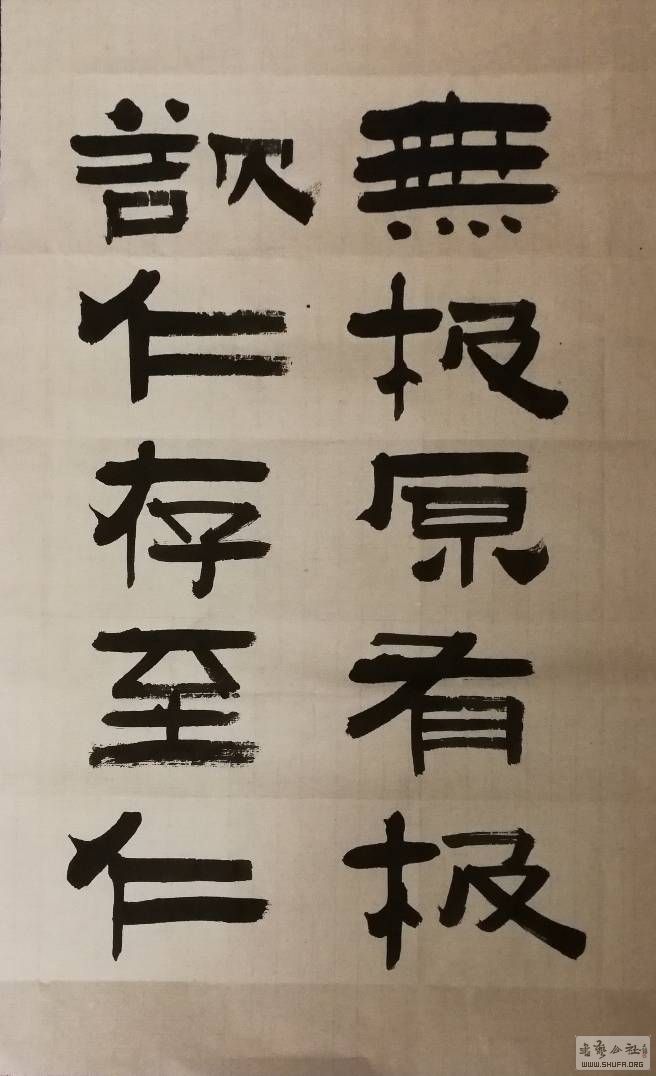 無极原有极
欲仁存至仁
書艺公社
WWW.SHUFA.ORG